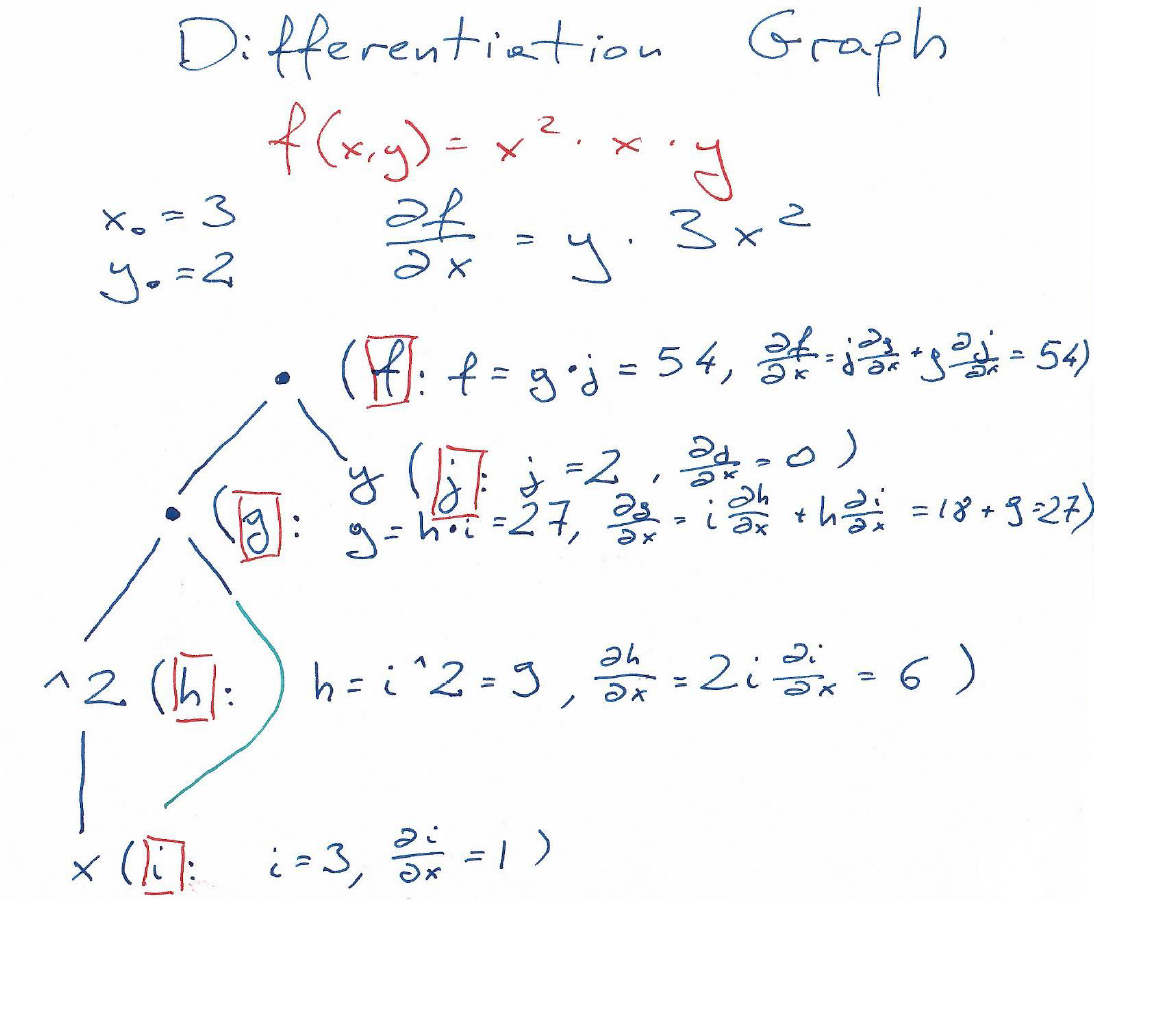 Differentiation Graph
f(x,y) = x² · x · y
x₀ = 3
∂f/∂x = y · 3x²
y₀ = 2
(f: f = g·j = 54, ∂f/∂x = j ∂g/∂x + g ∂j/∂x = 54)
y (j: j = 2, ∂j/∂x = 0)
(g: g = h·i = 27, ∂g/∂x = i ∂h/∂x + h ∂i/∂x = 18 + 9 = 27)
^2 (h: h = i^2 = 9, ∂h/∂x = 2i ∂i/∂x = 6)
x (i: i = 3, ∂i/∂x = 1)